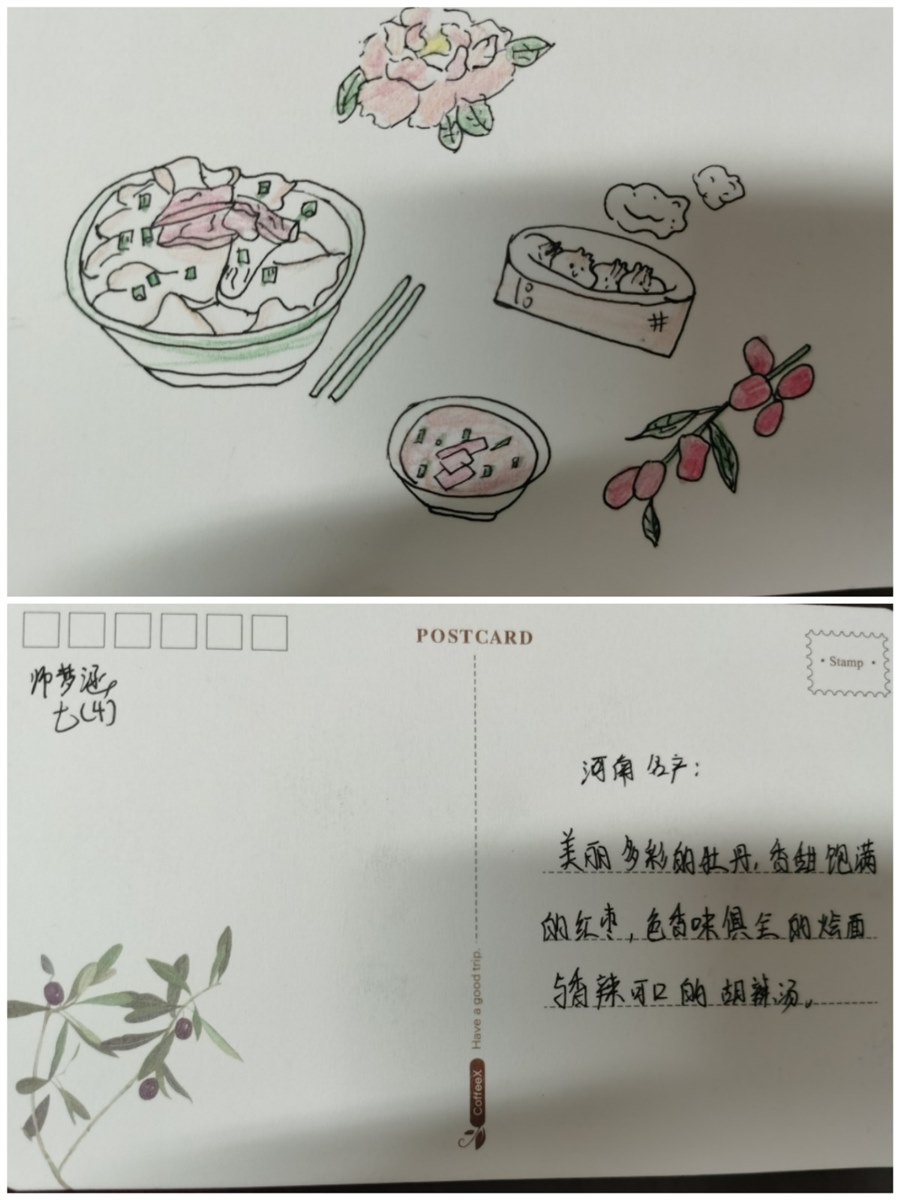 POSTCARD
• Stamp •
师梦涵
七(4)
河南名产：
美丽多彩的牡丹,香甜饱满
的红枣,色香味俱全的烩面
与香辣可口的胡辣汤。
Have a good trip.
CoffeeX